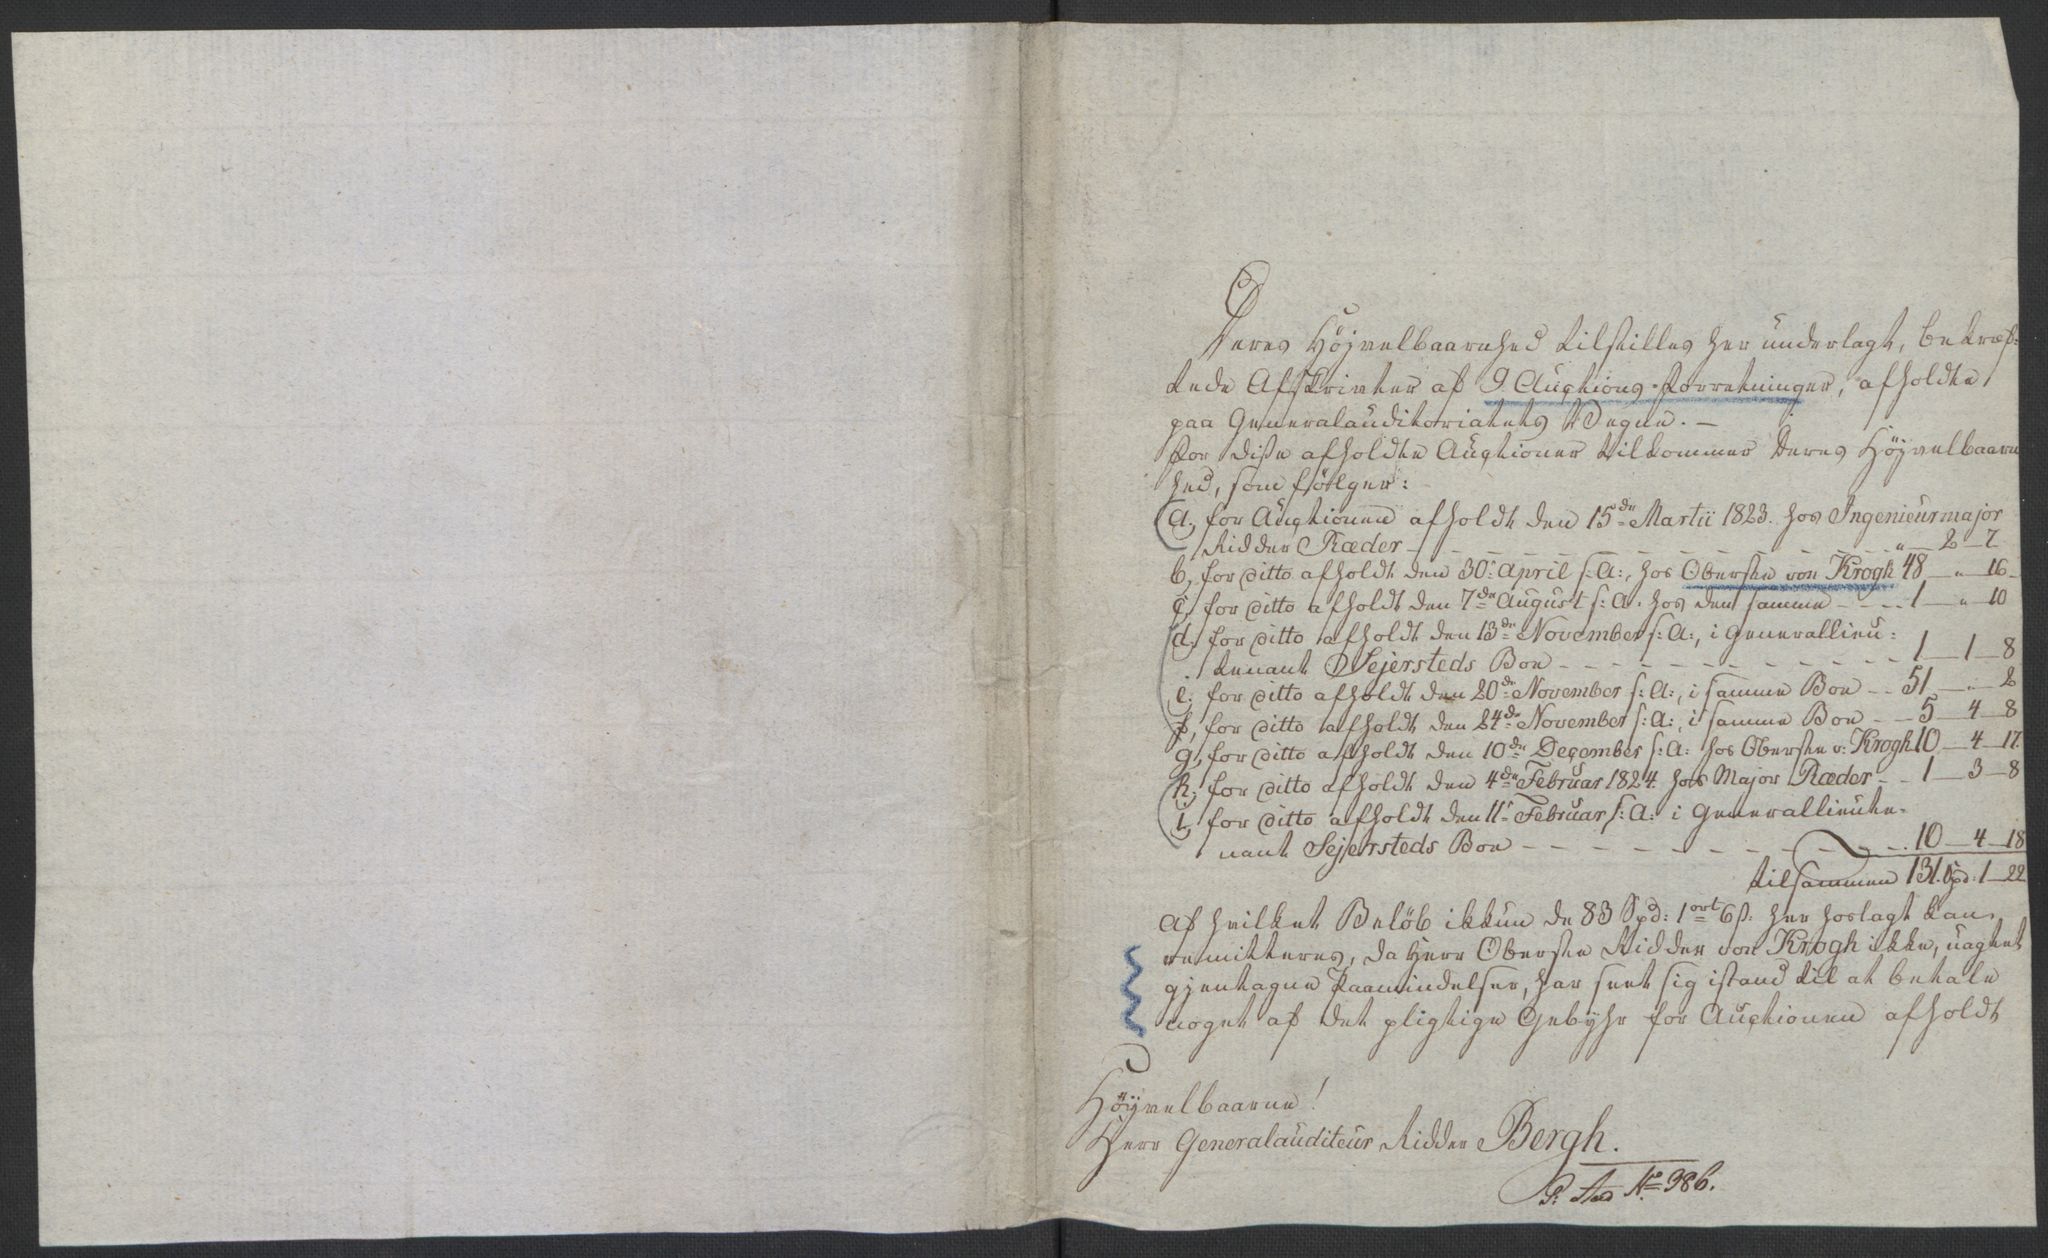 Deres Höjvelbaarnhed tilstilles her underlagt, bekræf-
tede Afskrivter af 9 Auctions-Forretninger, afholdte
paa Generalauditoriatets Vegne. -
For disse afholdte Auctioner tilkommer Deres Höjvelbaarn
hed, som fölger:
a, for Auctionen afholdt den 15de Martii 1823. hos Ingenieurmajor
Ridder Ræder - - - " - 2 - 7.
b, for ditto afholdt den 30' April s: A:, hos Obersten von Krogh 48 - " - 16 -
c, for ditto afholdt den 7de August s: A: hos den samme - - - 1 - " - 10
d, for ditto afholdt den 13de November s: A:, i Generallieu:
tenant Sejersteds Boe - - - 1 - 1 - 8
e, for ditto afholdt den 20de November s: A:, i samme Boe - - 51 - " - 2
f, for ditto afholdt den 24de November s: A:, i samme Boe - - 5 - 4 - 8
g, for ditto afholdt den 10de December s: A: hos Obersten v: Krogh 10 - 4 - 17.
h, for ditto afholdt den 4de Februar 1824. hos Major Ræder - - 1 - 3 - 8
i, for ditto afholdt den 11' Februar s: A: i Generallieute-
nant Sejersteds Boe - - - 10 - 4 - 18
tilsammen 131. Spd: 1 - 22
Af hvilket Belöb ikkun de 83 Spd: 1 ort 6 s: her hoslagt kan
remitteres, da Herr Obersten Ridder von Krogh ikke, uagtet
gjentagne Paamindelser, har seet sig istand til at betale
noget af det pligtige Gebyhr for Auctionen afholdt
Höÿvelbaarne!
Herr Generalauditeur Ridder Bergh.
No 386.